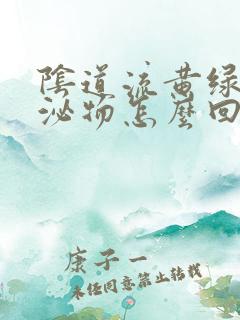 陰道流黄绿
泌物怎麼回
康子一
未任同意禁止转载